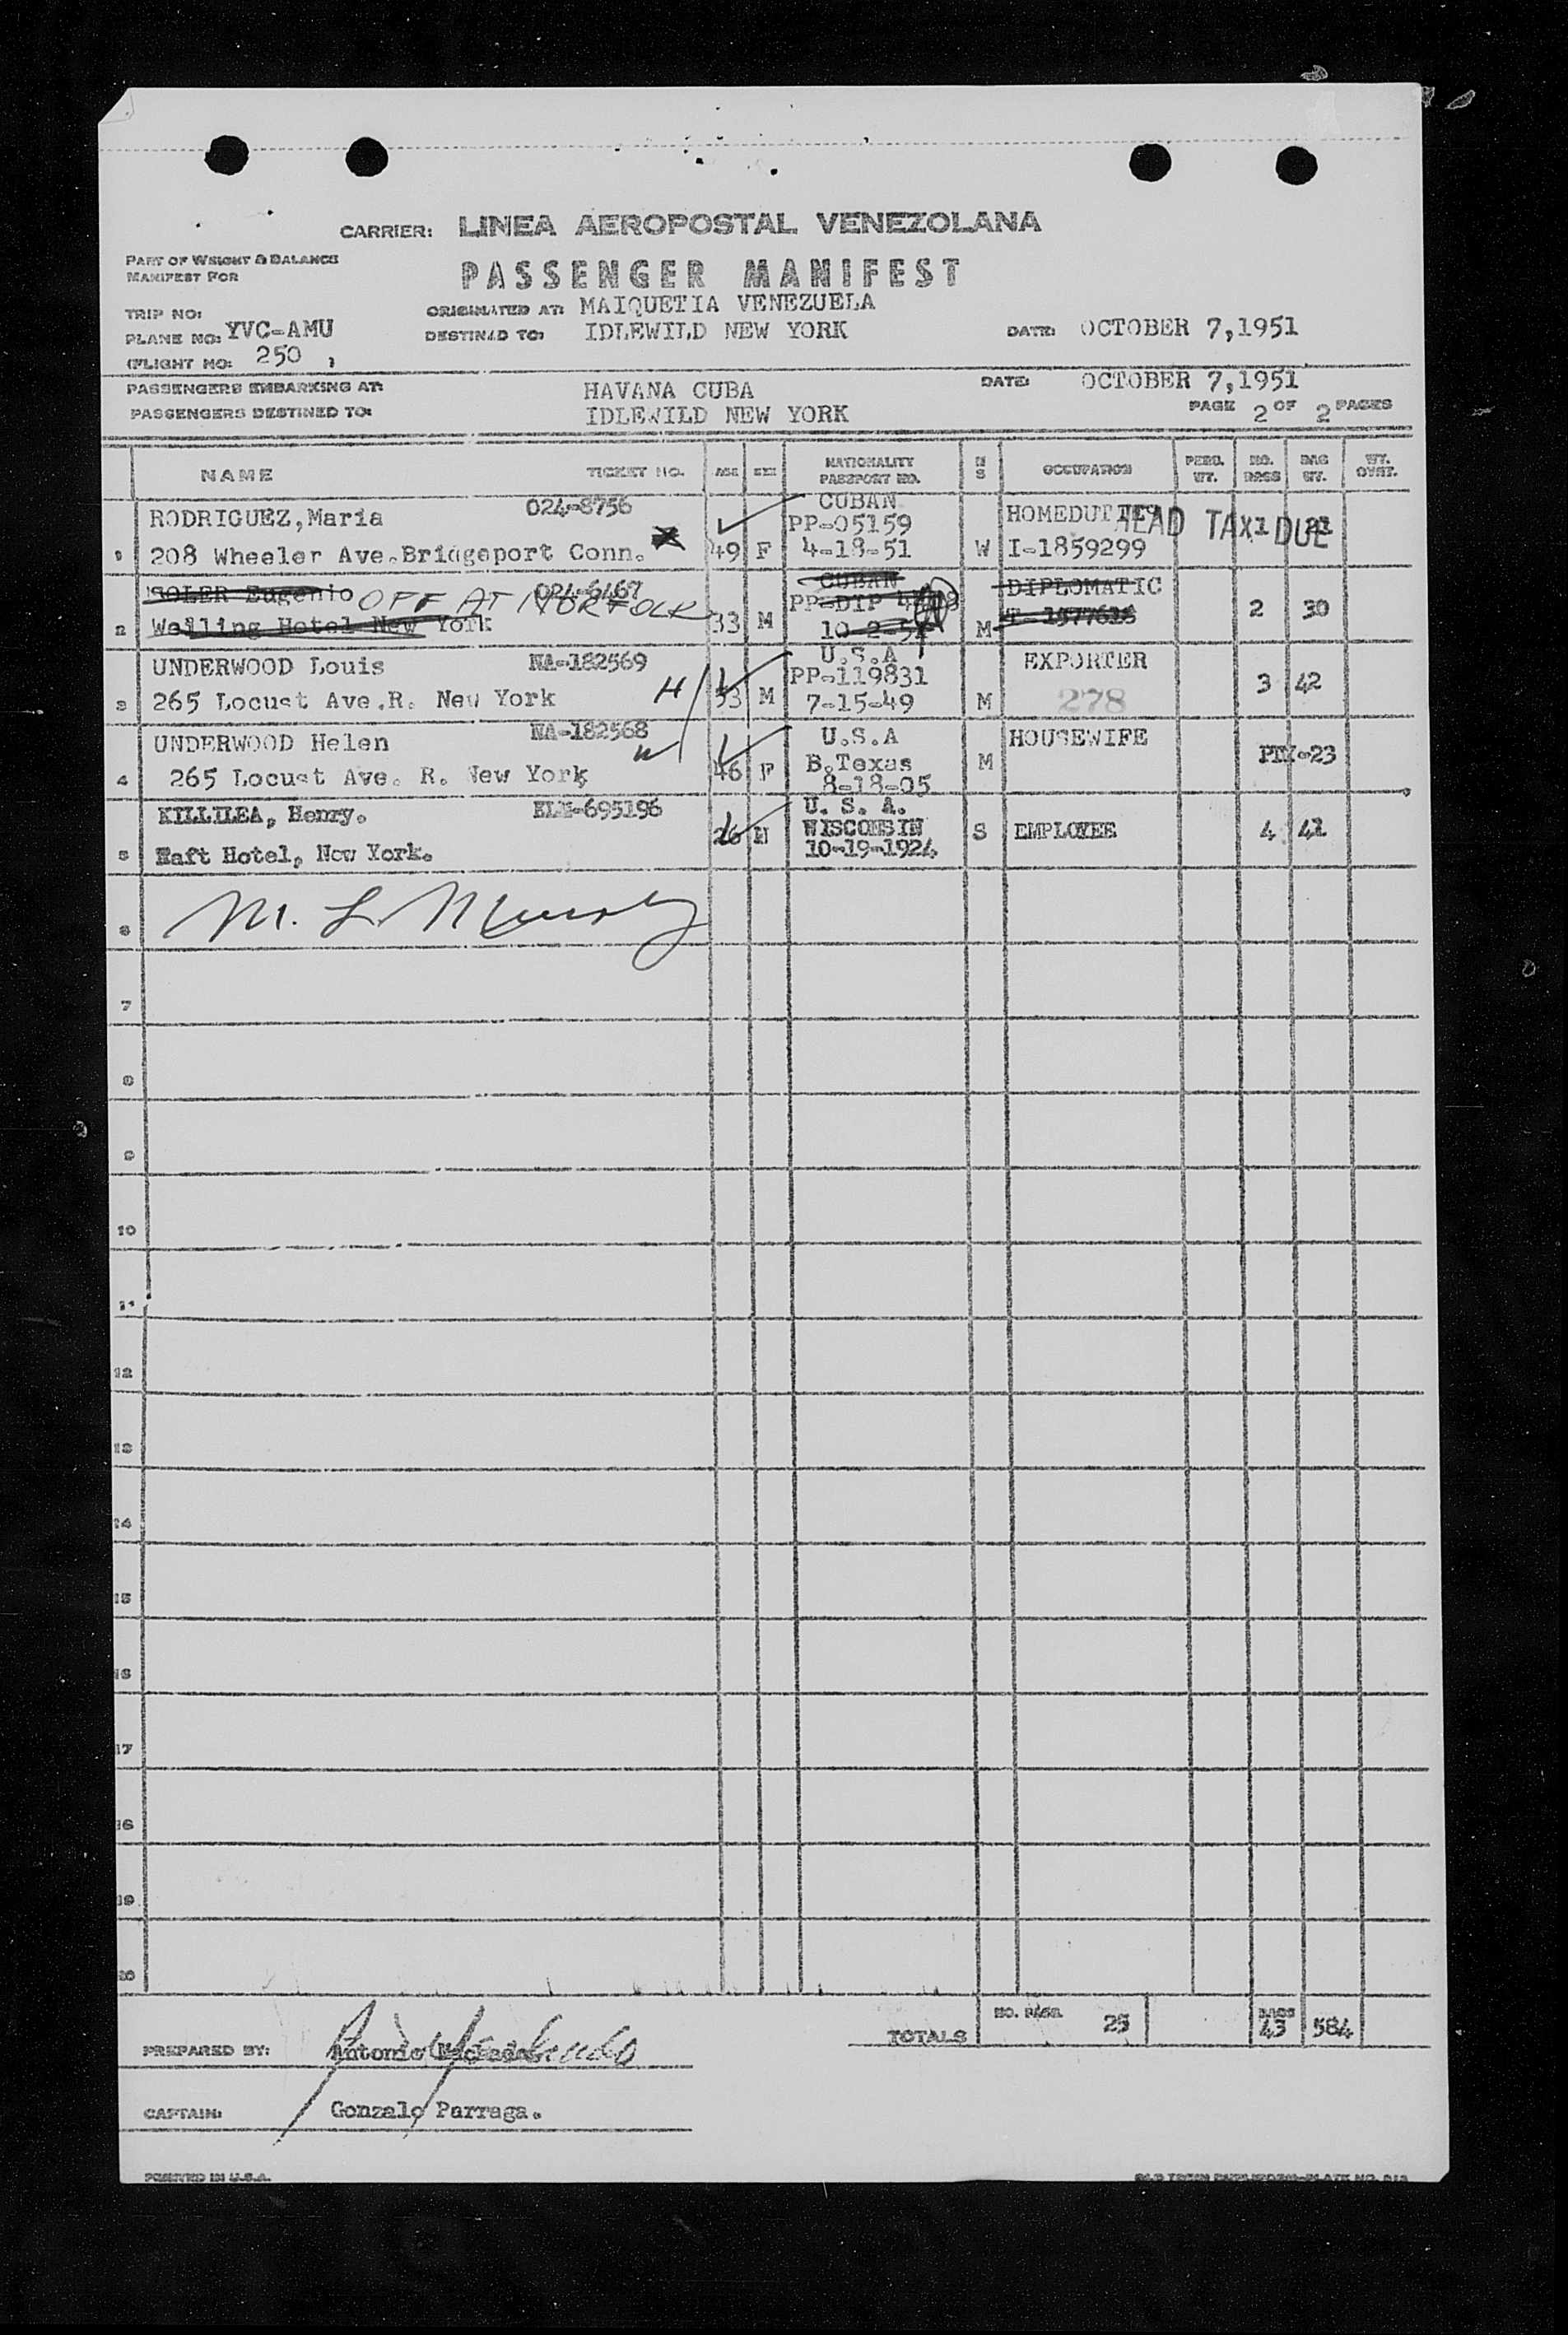 CARRIER: LINEA AEROPOSTAL VENEZOLANA
PART OF WEIGHT & BALANCE
MANIFEST FOR
PASSENGER MANIFEST
TRIP NO:
ORIGINATED AT: MAIQUETIA VENEZUELA
PLANE NO: YVC-AMU
DESTINED TO: IDLEWILD NEW YORK
DATE: OCTOBER 7,1951
(FLIGHT NO: 250 )
PASSENGERS EMBARKING AT: HAVANA CUBA
DATE: OCTOBER 7,1951
PASSENGERS DESTINED TO: IDLEWILD NEW YORK
PAGE 2 OF 2 PAGES
NAME TICKET NO. AGE SEX NATIONALITY PASSPORT NO. M S OCCUPATION PERS. WT. NO. BAGS BAG WT. WT. OVWT.
024-8756 CUBAN
RODRIGUEZ,Maria PP-05159 HOMEDUTIES HEAD TAX DUE 1 21
1 208 Wheeler Ave.Bridgeport Conn. 49 F 4-18-51 W I-1859299
SOLER Eugenio OFF AT NORFOLK 024-6467 CUBAN DIPLOMATIC
PP-DIP
2 Welling Hotel New York 33 M 10-2-51 M 2 30
UNDERWOOD Louis NA-182569 U.S.A EXPORTER
PP-119831
3 265 Locust Ave.R. New York H 53 M 7-15-49 M 278 3 42
NA-182568
UNDERWOOD Helen W U.S.A HOUSEWIFE
B.Texas M -23
4 265 Locust Ave. R. New York 46 F 8-18-05
KILLILEA, Henry. ELM-695196 U. S. A.
26 M WISCONSIN S EMPLOYEE 4 41
5 Taft Hotel, New York. 10-19-1924
6 M. L. Murphy
7
8
9
10
11
12
13
14
15
16
17
18
19
20
TOTALS NO. PASS. 25 BAGS 43 584
PREPARED BY: Antonio Machado
CAPTAIN: Gonzalo Parraga.
PRINTED IN U.S.A.